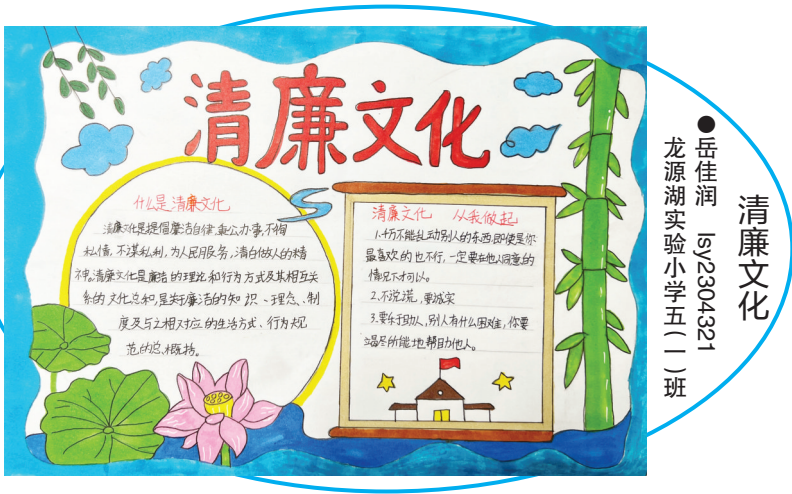 清廉文化
什么是清廉文化
清廉文化是提倡廉洁自律、秉公办事,不徇
私情,不谋私利,为人民服务,清白做人的精
神。清廉文化是廉洁的理论和行为方式及其相互关
系的文化总和,是关于廉洁的知识、理念、制
度及与之相对应的生活方式、行为规
范的总概括。
清廉文化 从我做起
1.千万不能乱动别人的东西,即使是你
最喜欢的也不行,一定要在他人同意的
情况下才可以。
2.不说谎,要诚实
3.要乐于助人,别人有什么困难,你要
竭尽所能地帮助他人。
清廉文化
●岳佳润 lsy2304321
龙源湖实验小学五(一)班